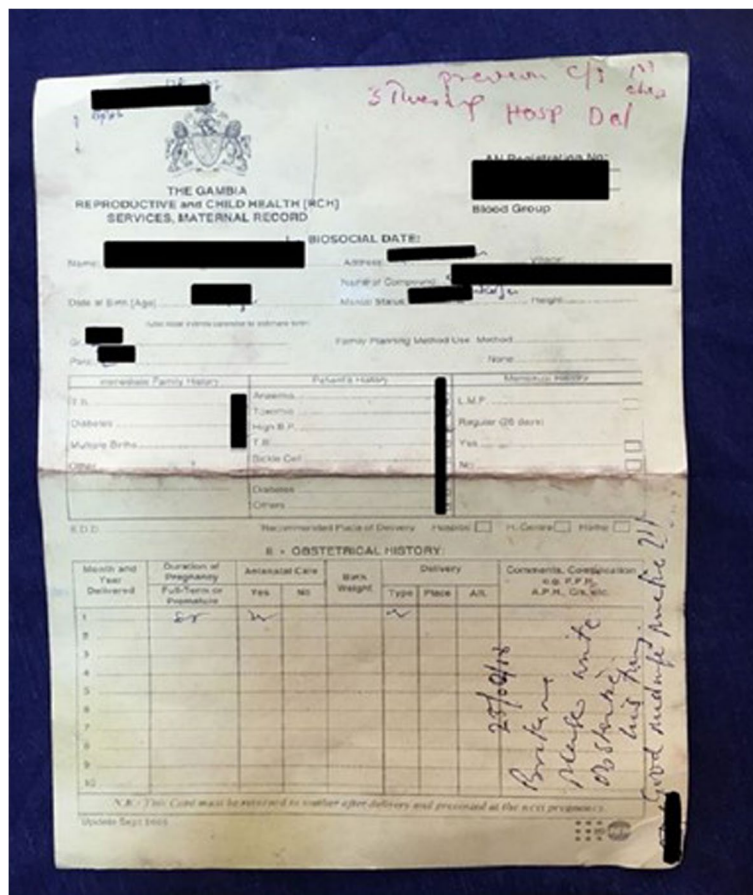 previous c/s
Hosp Del
AN Registration No:
THE GAMBIA
REPRODUCTIVE and CHILD HEALTH [RCH]
SERVICES, MATERNAL RECORD
Blood Group
BIOSOCIAL DATE:
Name:
Address:
Village:
Name of Compound:
Date of Birth [Age]
Marital Status:
Height:
Family Planning Method Use: Method
Para:
None
Immediate Family History
Patient's History
Menstrual History
T.B.
Anaemia
L.M.P.
Toxemia
Diabetes
High B.P.
Regular (28 days)
Multiple Births
T.B.
Yes
Other
Sickle Cell
No
Diabetes
Others
E.D.D.
Recommended Place of Delivery
Hospital
H. Centre
Home
II - OBSTETRICAL HISTORY:
Month and Year Delivered
Duration of Pregnancy
Full-Term or Premature
Antenatal Care
Yes
No
Birth Weight
Delivery
Type
Place
Comments, Complication e.g. P.P.H., A.P.H., C/s, etc.
1
2
3
4
5
6
7
8
9
10
Please write
obstetric
Good midwife
N.B.: This Card must be returned to mother after delivery and presented at the next pregnancy.
Update Sept